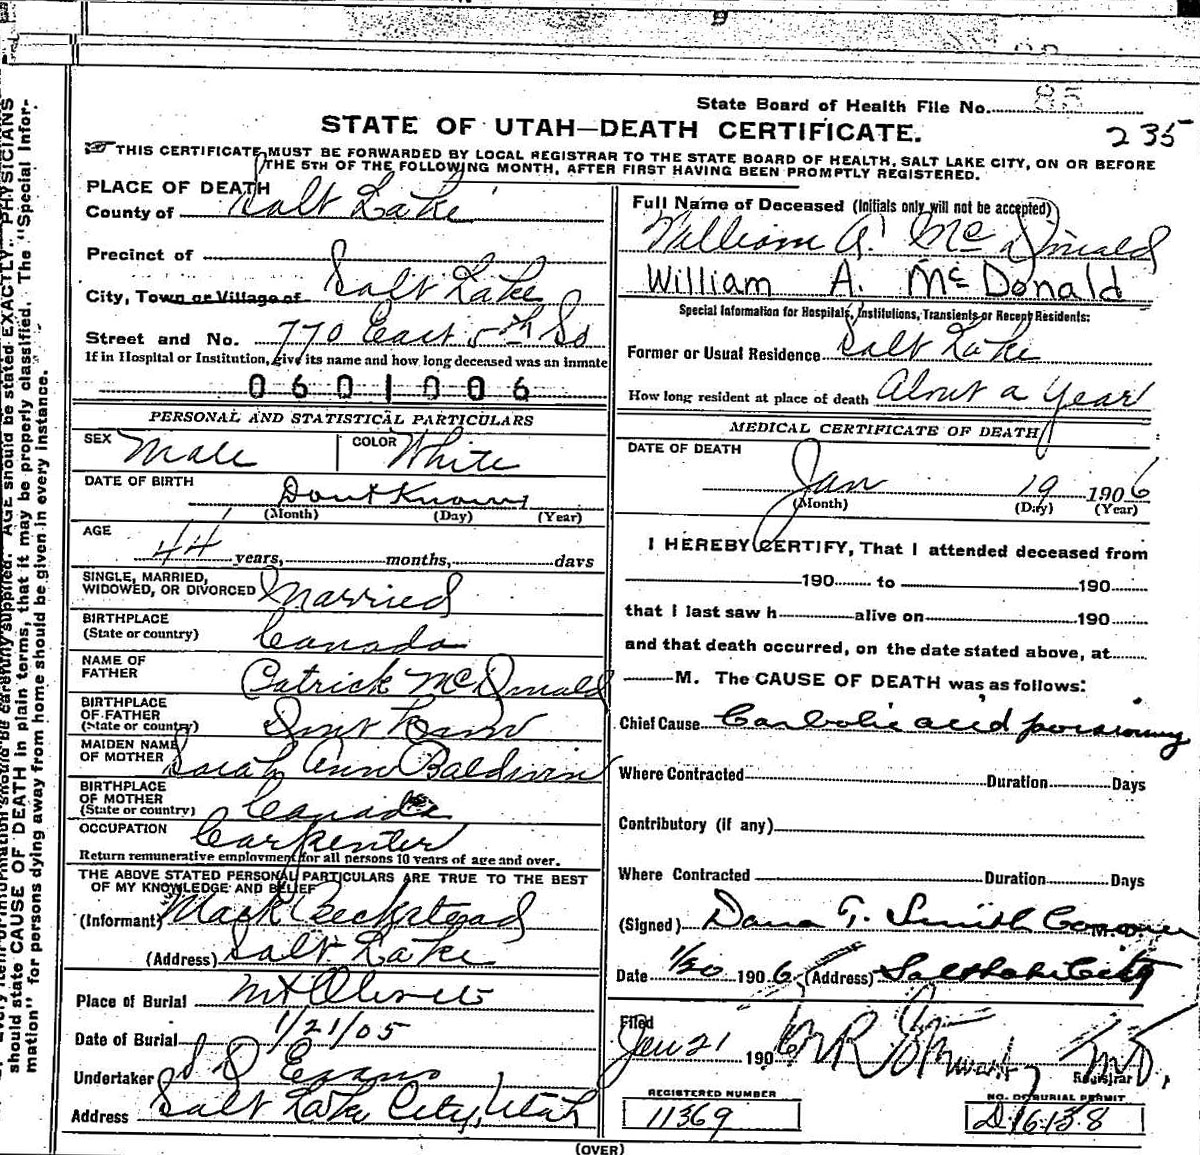 State Board of Health File No. 85
STATE OF UTAH—DEATH CERTIFICATE.
235
THIS CERTIFICATE MUST BE FORWARDED BY LOCAL REGISTRAR TO THE STATE BOARD OF HEALTH, SALT LAKE CITY, ON OR BEFORE
THE 5TH OF THE FOLLOWING MONTH, AFTER FIRST HAVING BEEN PROMPTLY REGISTERED.
PLACE OF DEATH
County of Salt Lake
Precinct of
City, Town or Village of Salt Lake
Street and No. 770 East 5th So
If in Hospital or Institution, give its name and how long deceased was an inmate
0601006
PERSONAL AND STATISTICAL PARTICULARS
SEX Male COLOR White
DATE OF BIRTH Dont Know
(Month) (Day) (Year)
AGE 44 years, months, days
SINGLE, MARRIED,
WIDOWED, OR DIVORCED Married
BIRTHPLACE
(State or country) Canada
NAME OF
FATHER Patrick McDonald
BIRTHPLACE
OF FATHER
(State or country) Dont Know
MAIDEN NAME
OF MOTHER Sarah Ann Baldwin
BIRTHPLACE
OF MOTHER
(State or country) Canada
OCCUPATION Carpenter
Return remunerative employment for all persons 10 years of age and over.
THE ABOVE STATED PERSONAL PARTICULARS ARE TRUE TO THE BEST
OF MY KNOWLEDGE AND BELIEF
(Informant) Mack Beckstead
(Address) Salt Lake
Place of Burial Mt Olivet
Date of Burial 1/21/05
Undertaker S D Evans
Address Salt Lake City, Utah
Full Name of Deceased (Initials only will not be accepted)
William A. McDonald
William A. McDonald
Special Information for Hospitals, Institutions, Transients or Recent Residents:
Former or Usual Residence Salt Lake
How long resident at place of death About a Year
MEDICAL CERTIFICATE OF DEATH
DATE OF DEATH
Jan 19 1906
(Month) (Day) (Year)
I HEREBY CERTIFY, That I attended deceased from
190 to 190
that I last saw h alive on 190
and that death occurred, on the date stated above, at
M. The CAUSE OF DEATH was as follows:
Chief Cause Carbolic acid poisoning
Where Contracted Duration Days
Contributory (if any)
Where Contracted Duration Days
(Signed) Dana T. Smith Coroner M.D.
Date 1/20 1906 (Address) Salt Lake City
Filed
Jan 21 1906 M R Stewart, M.D.
Registrar
REGISTERED NUMBER
11369
NO. OF BURIAL PERMIT
D 16138
(OVER)
should state CAUSE OF DEATH in plain terms, that it may be properly classified. The "Special Infor-
mation" for persons dying away from home should be given in every instance.
AGE should be stated EXACTLY. PHYSICIANS